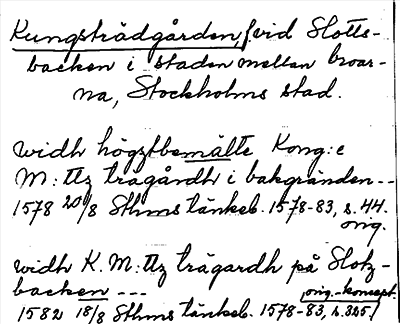 Kungsträdgården, vid Slotts-
backen i staden mellan broar-
na, Stockholms stad.
widh högstbemälte Kong:e
M:ttz trägårdh i bakgränden --
1578 20/8 Sthms tänkeb. 1578-83, s. 44.
orig.
widh K. M:ttz trägardh på Slotz-
backen ---
orig.-konsept.
1582 18/8 Sthms tänkeb. 1578-83, s. 325.